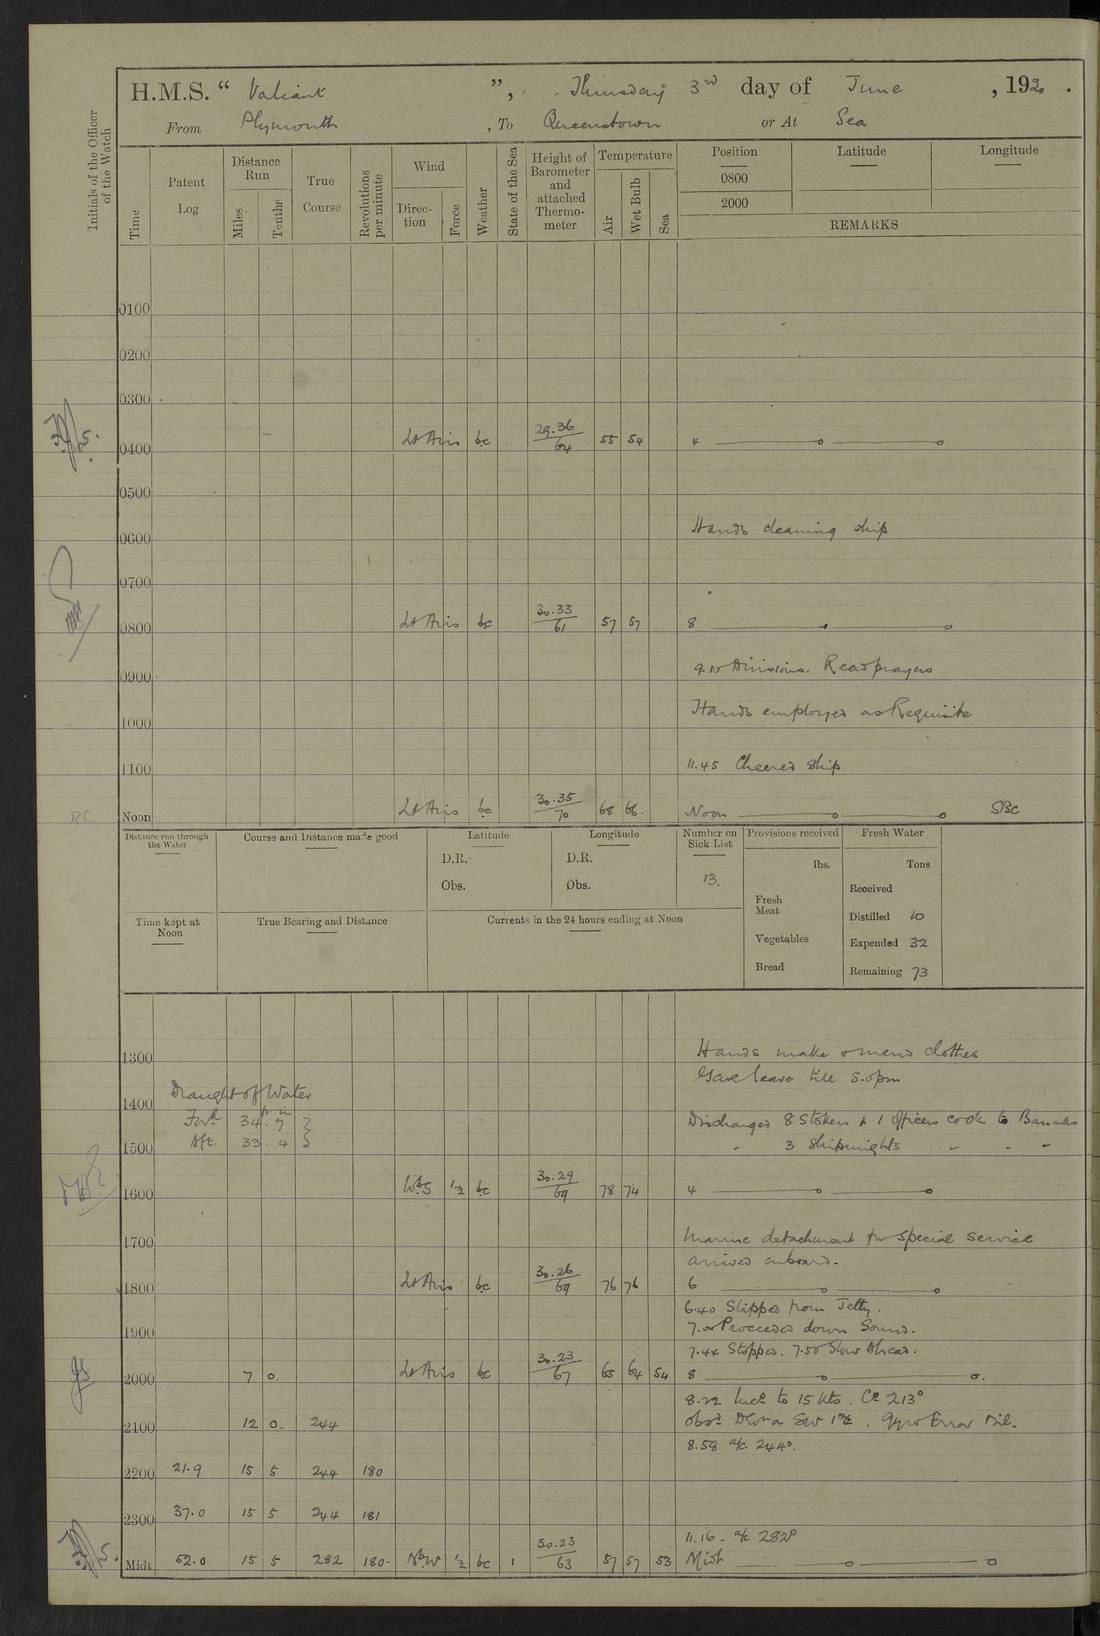 H.M.S. “ Valiant ”, Thursday 3rd day of June , 1920 .
From Plymouth , To Queenstown or At Sea
Initials of the Officer of the Watch
Time
Patent Log
Distance Run
Miles
Tenths
True Course
Revolutions per minute
Wind
Direction
Force
Weather
State of the Sea
Height of Barometer and attached Thermometer
Temperature
Air
Wet Bulb
Sea
Position Latitude Longitude
0800
2000
REMARKS
0100
0200
0300
0400 Lt Airs bc 29.36/64 55 54 4
0500
Hands cleaning ship
0600
0700
0800 Lt Airs bc 30.33/61 57 57 8
9.10 Divisions. Read prayers
0900
Hands employed as Requisite
1000
11.45 Cheered Ship
1100
Noon Lt Airs bc 30.35/70 68 66. Noon SBC
Distance run through the Water
Course and Distance made good
Latitude
D.R.
Obs.
Longitude
D.R.
Obs.
Number on Sick List
13.
Provisions received
lbs.
Fresh Meat
Vegetables
Bread
Fresh Water
Tons
Received
Distilled 10
Expended 32
Remaining 73
Time kept at Noon
True Bearing and Distance
Currents in the 24 hours ending at Noon
Hands make & mend clothes
1300
Gave leave till 5.0pm
Draught of Water
1400
ft in
Ford 34. 7
Discharged 8 Stokers & 1 Officers cook to Barracks
Aft. 33. 4
" 3 Shipwrights " " "
1500
1600 WbS 1/2 bc 30.29/69 78 74 4
Marine detachment for special service
1700
arrived onboard.
1800 Lt Airs bc 30.26/69 76 76 6
6.40 Slipped from Jetty.
7.0 Proceeded down Sound.
1900
7.44 Stopped. 7.50 Slow Ahead.
2000 7 0. Lt Airs bc 30.23/67 65 64 54 8
8.22 Incd to 15 Kts. Co 213°
2100 12 0. 244 Obsd Devn Gyro Error Nil.
8.58 a/c 244°.
2200 21.9 15 5 244 180
2300 37.0 15 5 244 181
11.16 - a/c 282°
Midt. 52.0 15 5 282 180. NbW 1/2 bc 1 30.23/63 57 57 53 Midt